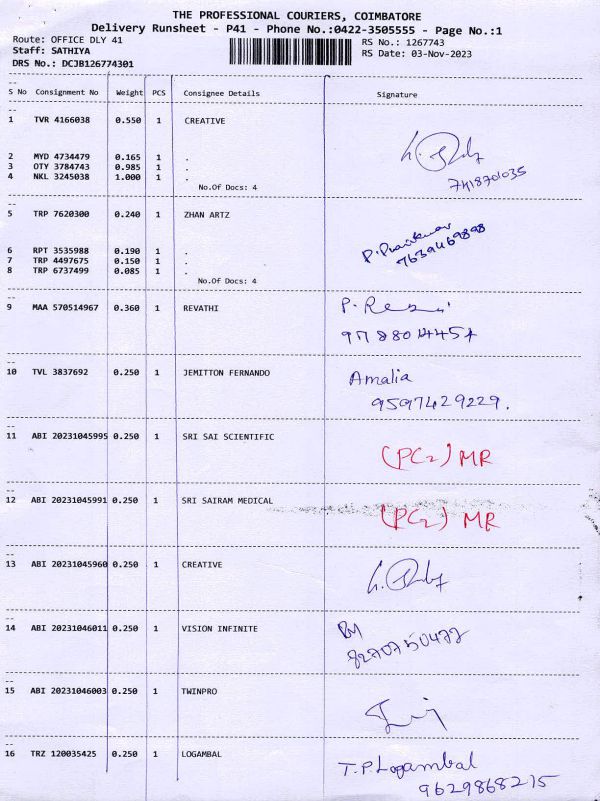 THE PROFESSIONAL COURIERS, COIMBATORE
Delivery Runsheet - P41 - Phone No.:0422-3505555 - Page No.:1
Route: OFFICE DLY 41 RS No.: 1267743
Staff: SATHIYA RS Date: 03-Nov-2023
DRS No.: DCJB126774301
S No Consignment No Weight PCS Consignee Details Signature
1 TVR 4166038 0.550 1 CREATIVE
2 MYD 4734479 0.165 1 .
3 OTY 3784743 0.985 1 .
4 NKL 3245038 1.000 1 .
No.Of Docs: 4
5 TRP 7620300 0.240 1 ZHAN ARTZ
6 RPT 3535988 0.190 1 .
7 TRP 4497675 0.150 1 .
8 TRP 6737499 0.085 1 .
7639469898
No.Of Docs: 4
9 MAA 570514967 0.360 1 REVATHI
10 TVL 3837692 0.250 1 JEMITTON FERNANDO Amalia
9597429229.
11 ABI 20231045995 0.250 1 SRI SAI SCIENTIFIC
(PC2) MR
12 ABI 20231045991 0.250 1 SRI SAIRAM MEDICAL
(PC2) MR
13 ABI 20231045960 0.250 1 CREATIVE
14 ABI 20231046011 0.250 1 VISION INFINITE
15 ABI 20231046003 0.250 1 TWINPRO
16 TRZ 120035425 0.250 1 LOGAMBAL T.P.Logambal
9629868215